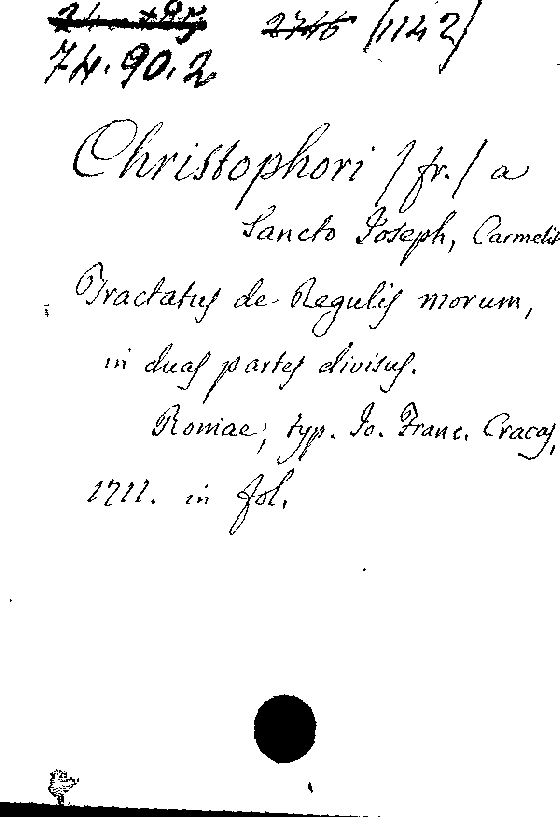 2746 (1142)
74.90.2
Christophori / fr. / a
Sancto Joseph, Carmelit
Tractatus de Regulis morum,
in duas partes divisus.
Romae, typ. Jo. Franc. Cracas,
1711. in fol.